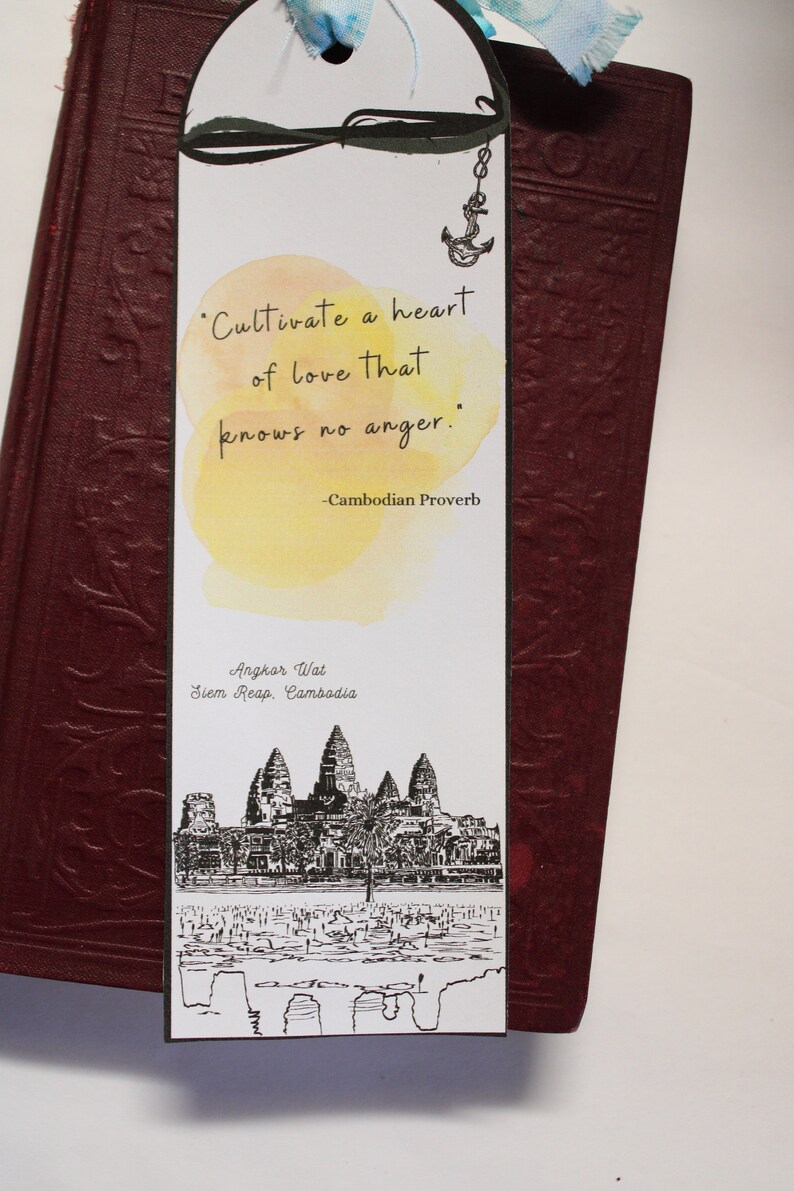 "Cultivate a heart
of love that
knows no anger."
-Cambodian Proverb
Angkor Wat
Siem Reap, Cambodia